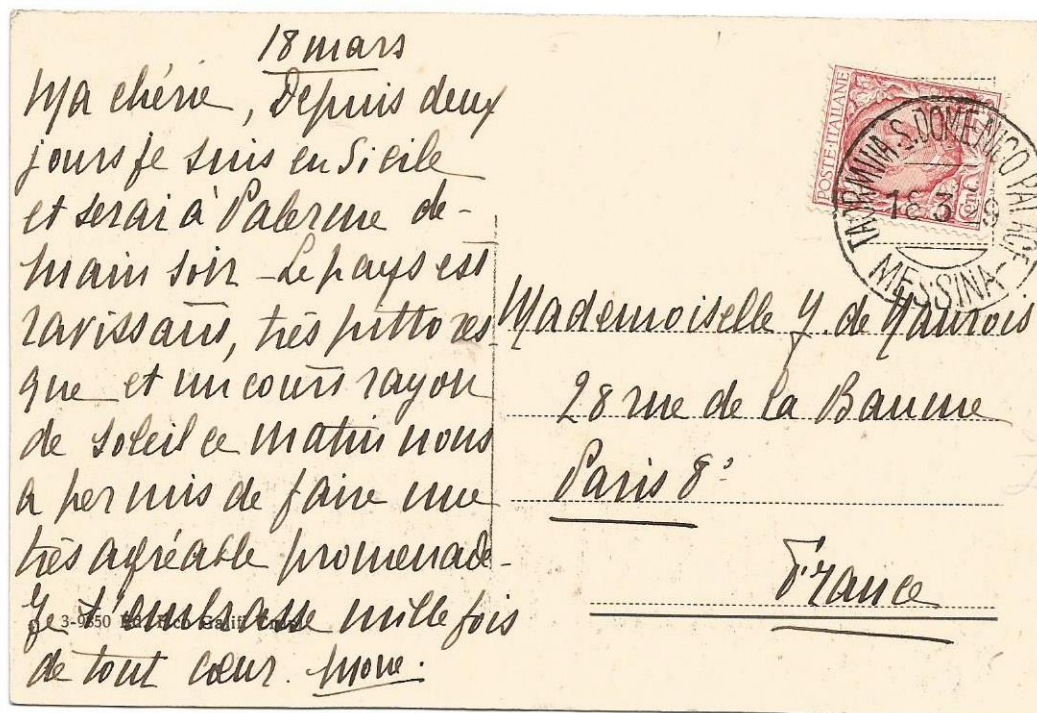 18 mars
Ma chérie, Depuis deux
jours je suis en Sicile
et serai à Palerme de-
main soir - Le pays est
ravissant, très pittores-
que et un court rayon
de soleil ce matin nous
a permis de faire une
très agréable promenade-
Je t'embrasse mille fois
de tout cœur.
3-9350
POSTE·ITALIANE
Cent
TAORMINA·S.DOMENICO PALACE
18 3
MESSINA
Mademoiselle Y. de Maurois
28 rue de la Baume
Paris 8e
France